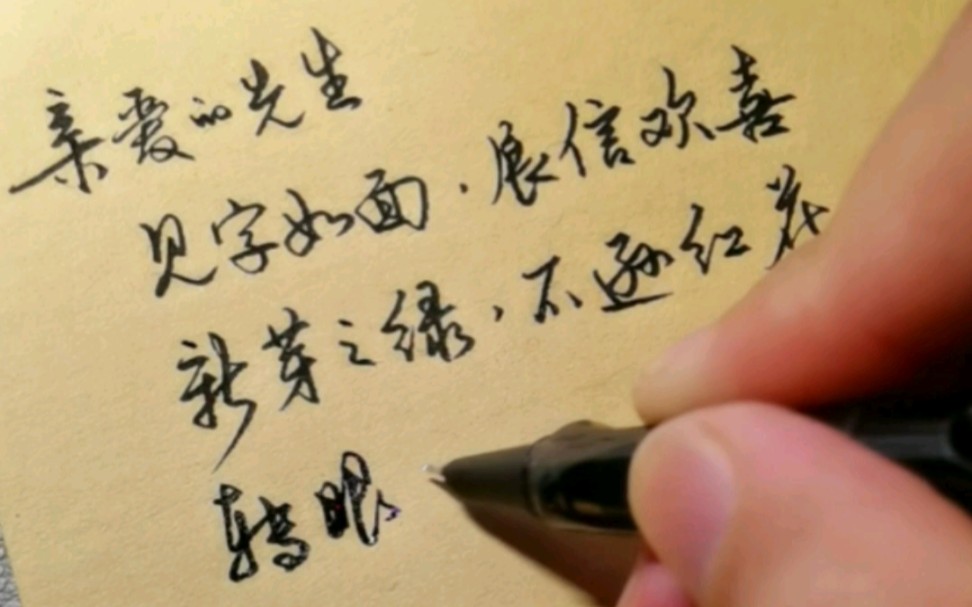 亲爱的先生
见字如面，展信欢喜
新芽之绿，不逊红花
转眼